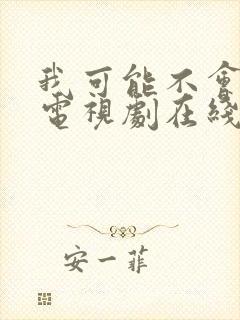 我可能不會
電視劇在綫
安一菲